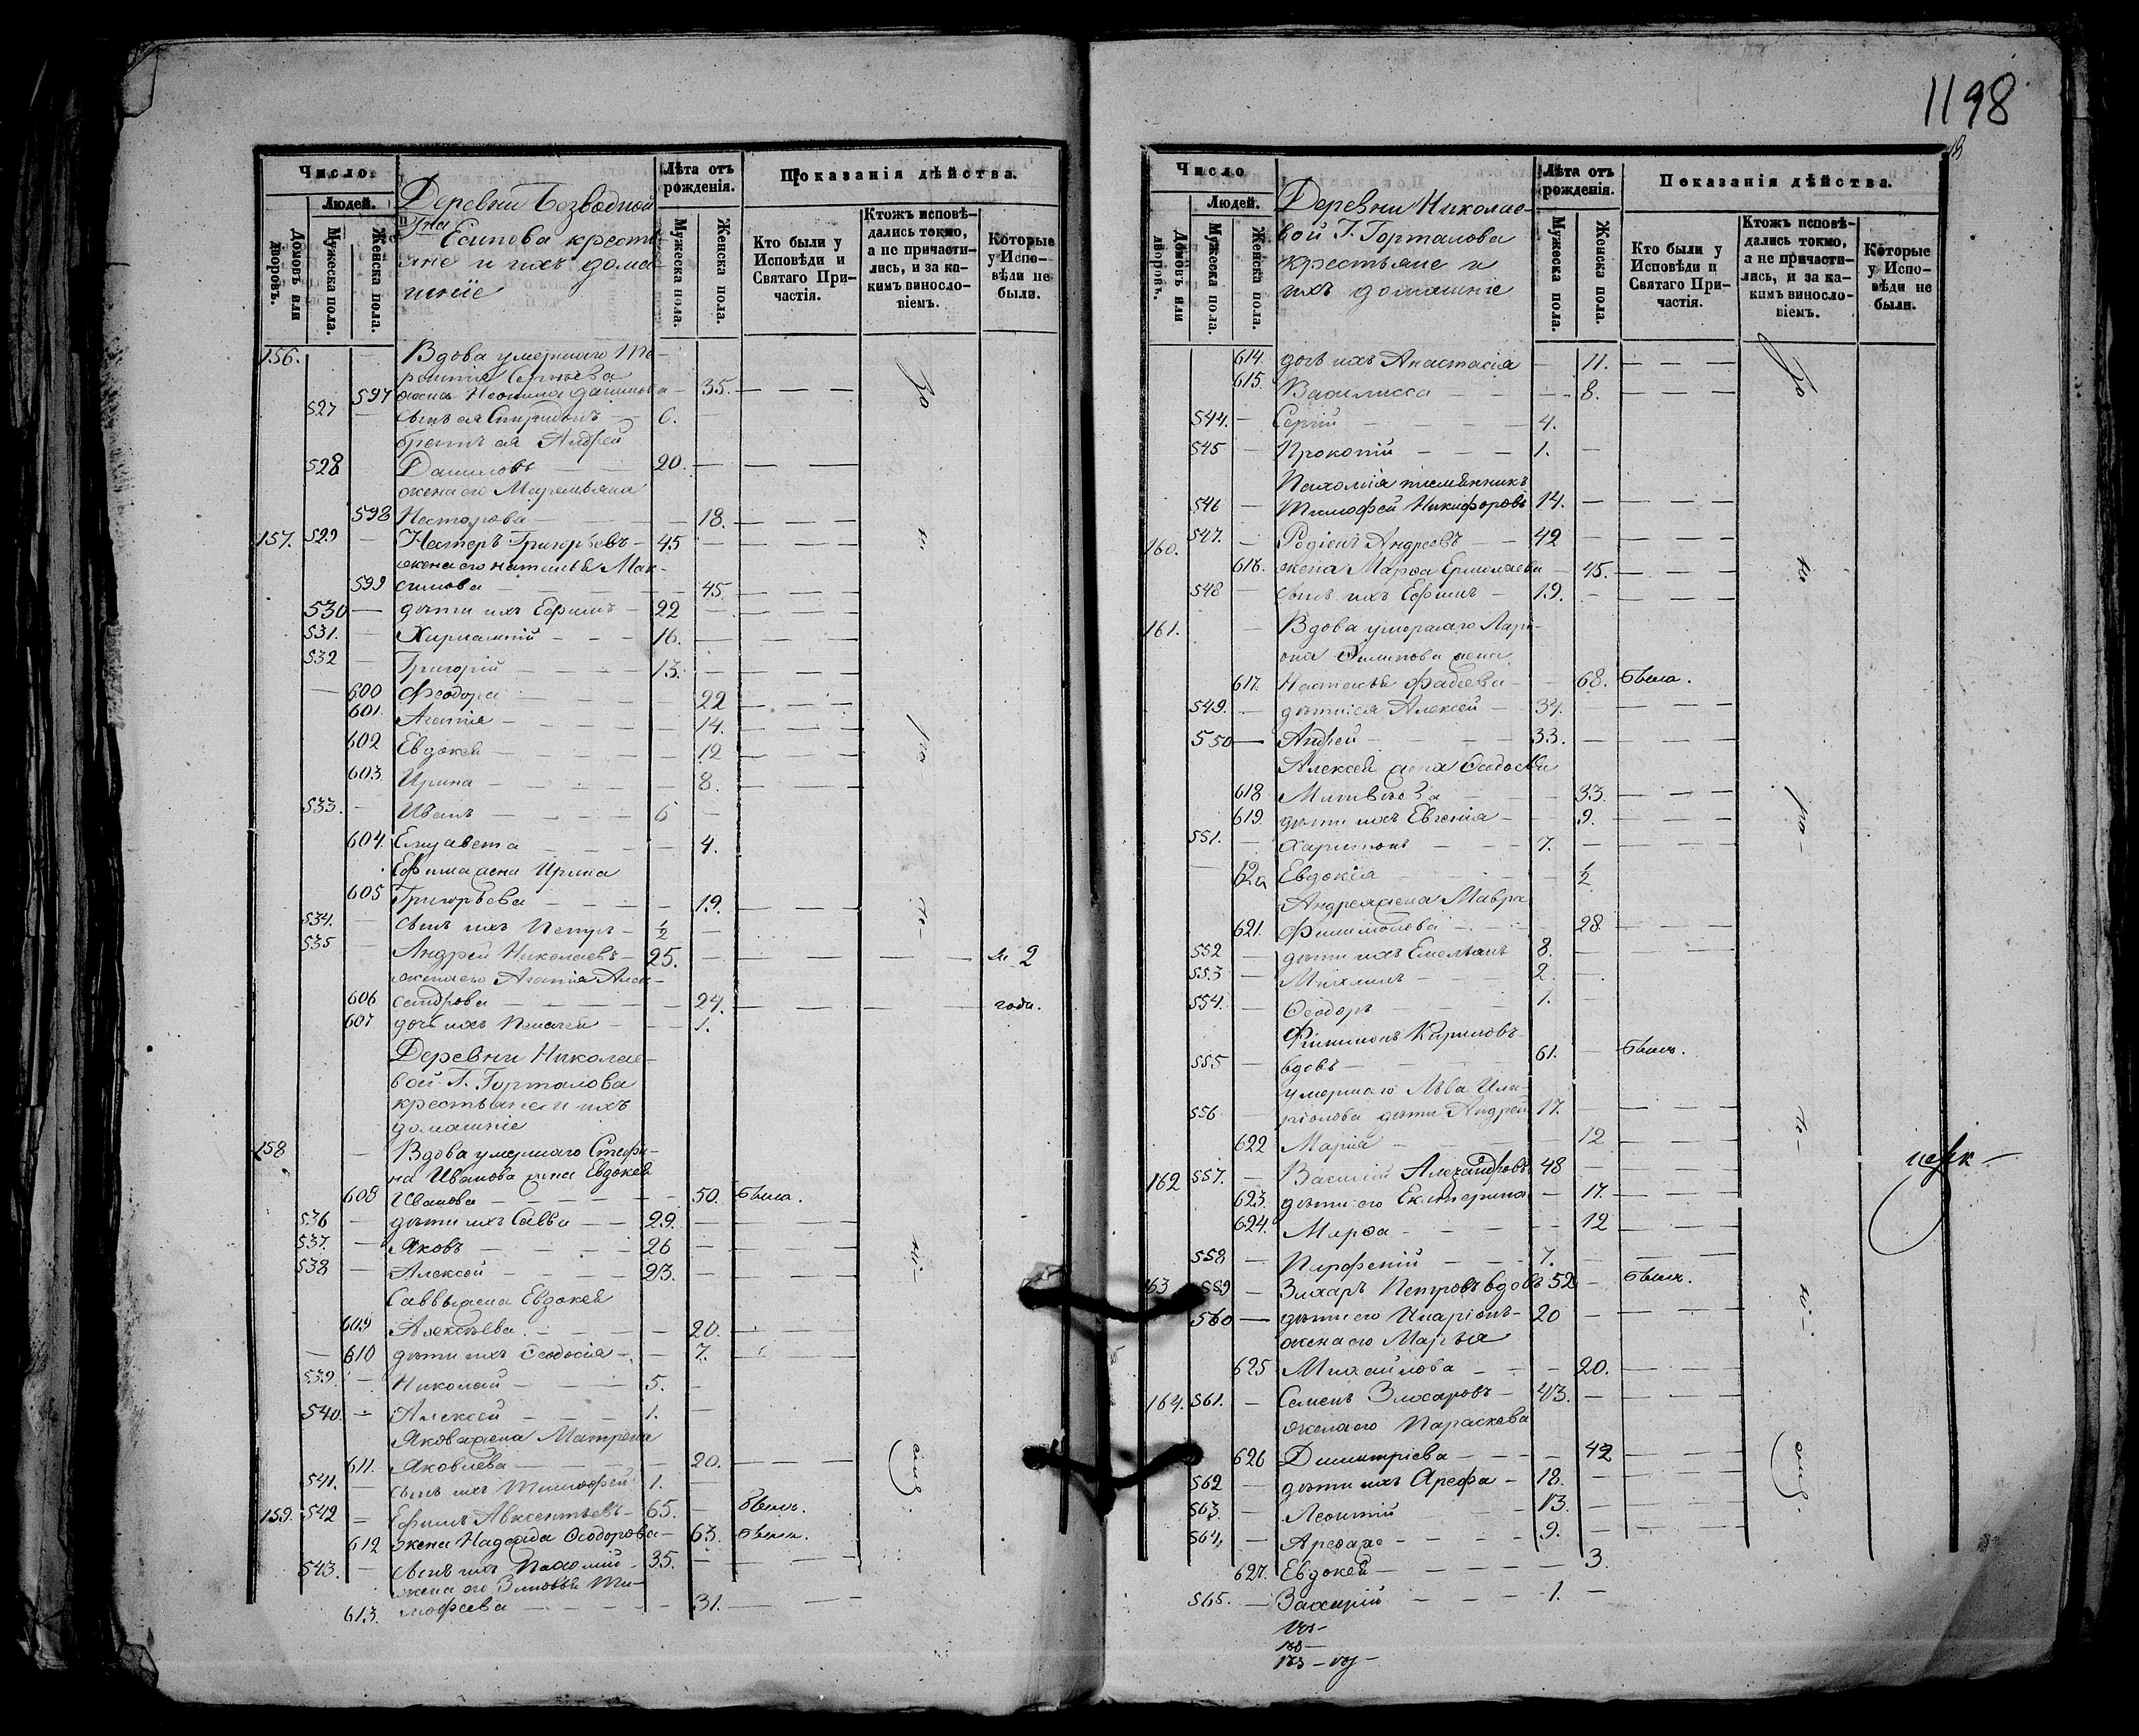 1198
Число.
Людей.
Домовъ или дворовъ.
Мужеска пола.
Женска пола.
Деревни Безводной
Гна Есипова кресть-
яне и ихъ дома-
шніе
Лѣта отъ рожденія.
Мужеска пола.
Женска пола.
Показанія дѣйства.
Кто были у Исповѣди и Святаго Причастія.
Ктожъ исповѣдались токмо, а не причастились, и за какимъ винословіемъ.
Которые у Исповѣди не были.
156. Вдова умершаго Те-
рентія Сергѣева
597 жена Неонила Данилова 35.
527 сынъ ея Спиридонъ 6.
братъ ея Андрей
528 Даниловъ 20.
жена его Маремьяна
598 Несторова 18.
157. 529 Нестеръ Григорьевъ 45
жена его Наталья Мак-
599 симова 45.
530 дѣти ихъ Ефимъ 22
531. Харлампій 16.
532 Григорій 13.
600 Феодора 22
601. Агапія 14.
602 Евдокея 12
603 Ирина 8.
533. Иванъ 6
604. Елизавета 4.
Ефима жена Ирина
605 Григорьева 19.
534. сынъ ихъ Петръ ½
535 Андрей Николаевъ 25. 2
жена его Агапія Алек-
606 сандрова 24. года.
607 дочь ихъ Пелагея 1.
Деревни Николае-
вой Г. Горталова
крестьяне и ихъ
домашніе
158 Вдова умершаго Стефа-
на Иванова жена Евдокея
608 Иванова 50. была.
536 дѣти ихъ Савва 29.
537. Яковъ 26
538 Алексей 23.
Саввы жена Евдокея
609 Алексѣева 20.
610 дѣти ихъ Ѳеодосія 7.
539. Николай 5.
540. Алексей 1.
Якова жена Матрена
611. Яковлева 20.
541. сынъ ихъ Тимофей 1.
159. 542 Ефимъ Авксентьевъ 65. былъ.
612 жена Надежда Ѳеодорова 63. была.
543. сынъ ихъ Пахомій 35.
жена его Зиновья Ти-
613. мофеева 31.
Число
Людей.
Домовъ или дворовъ.
Мужеска пола.
Женска пола.
Деревни Николае-
вой Г. Горталова
крестьяне и
ихъ домашніе
Лѣта отъ рожденія.
Мужеска пола.
Женска пола.
Показанія дѣйства.
Кто были у Исповѣди и Святаго Причастія.
Ктожъ исповѣдались токмо, а не причастились, и за какимъ винословіемъ.
Которые у Исповѣди не были.
614. дочь ихъ Анастасія 11.
615. Василисса 8.
544. Сергій 4.
545 Прокопій 1.
Пахомія племянникъ
546 Тимофей Никифоровъ 14.
160. 547. Родіонъ Андреевъ 42
616. жена Марѳа Ермилаева 45.
548 сынъ ихъ Ефимъ 19.
161. Вдова умершаго Лари-
она Филипова жена
617. Наталья Фадеева 68. была.
549. дѣти ея Алексей 34.
550 Андрей 33.
Алексея жена Ѳадосья
618 Матвѣева 33.
619. дѣти ихъ Евгенія 9.
551. Харитонъ 7.
620 Евдокія ½
Андрея жена Мавра
621. Филимонова 28
552 дѣти ихъ Емельянъ 8.
553 Михаилъ 2
554. Ѳеодоръ 1.
Филимонъ Кириловъ
555 вдовъ 61. былъ.
умершаго Льва Ила-
556 ріонова дѣти Андрей 17.
622 Марія 12
162 557. Василій Александровъ 48
623. дѣти его Екатерина 17.
624. Марѳа 12
558 Парфеній 7.
163 559 Захаръ Петровъ вдовъ 52 былъ.
560 дѣти его Иларіонъ 20
жена его Марья
625 Михайлова 20.
164. 561. Семенъ Захаровъ 43.
жена его Параскева
626 Димитріева 42
562 дѣти ихъ Арефа 18.
563. Леонтій 13.
564. 9.
627. Евдокея 3.
565. Захарій 1.